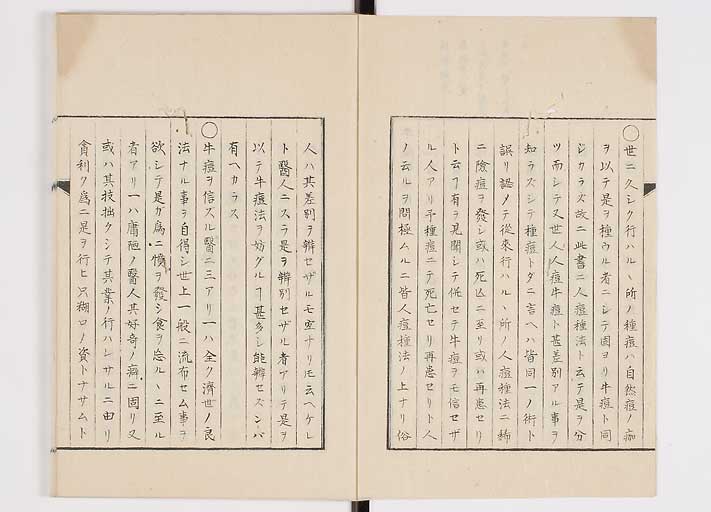 ○世ニ久シク行ハルヽ所ノ種痘ハ自然痘ノ痂
ヲ以テ是ヲ種ウル者ニシテ固ヨリ牛痘ト同
シカラズ故ニ此書ニ人痘種法ト云テ是ヲ分
ツ而シテ又世人人痘牛痘ト甚差別アル事ヲ
知ラズシテ種痘トダニ言ヘハ皆同一ノ術ト
誤リ認メテ從來行ハルヽ所ノ人痘種法ニ稀
ニ險痘ヲ發シ或ハ死亡ニ至リ或ハ再患セリ
ト云フ有ヲ見聞シテ併セテ牛痘ヲモ信セザ
ル人アリ予種痘ニテ死亡セリ再患セリト人
ノ云ルヲ問極ムルニ皆人痘種法ノ上ナリ俗
人ハ其差別ヲ辨セザルモ宜ナリ𪜈云ヘケレ
ト醫人ニスラ是ヲ辨別セザル者アリテ是ヲ
以テ牛痘法ヲ妨グルヿ甚多シ能辨セズンバ
有ヘカラス
○牛痘ヲ信スル醫ニ三アリ一ハ全ク濟世ノ良
法ナル事ヲ自得シ世上一般ニ流布セム事ヲ
欲シテ是カ爲ニ憤ヲ發シ食ヲ忘ルヽニ至ル
者アリ一ハ庸陋ノ醫人其好奇ノ癖ニ固リ又
或ハ其技拙クシテ其業ノ行ハレサルニ由リ
貪利ク爲ニ是ヲ行ヒ只糊口ノ資トナサムト